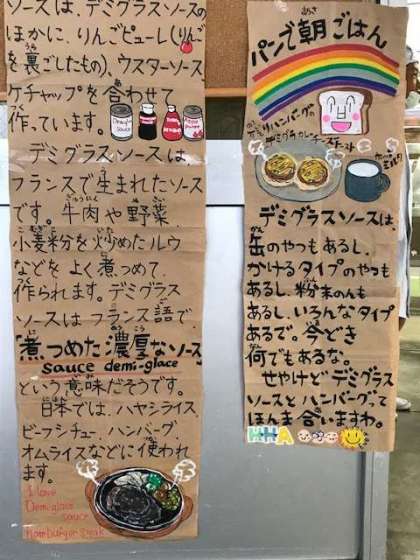 ソースは、デミグラスソースの
ほかに、りんごピューレ(りんご
を裏ごしたもの)、ウスターソース
ケチャップを合わせて
作っています。
デミグラスソースは
フランスで生まれたソース
です。牛肉や野菜、
小麦粉を炒めたルウ
などをよく煮つめて、
作られます。デミグラス
ソースはフランス語で、
「煮つめた濃厚なソース」
sauce demi-glace
という意味だそうです。
日本では、ハヤシライス
ビーフシチュー、ハンバーグ、
オムライスなどに使われ
ます。
I love
Demi-glace
sauce
Hamburger steak
パンで朝ごはん
ハンバーグの
デミグラカレーチーズトースト
ミルク
デミグラスソースは、
缶のやつもあるし、
かけるタイプのやつも
あるし、粉末のんも
あるし、いろんなタイプ
あるで。今どき
何でもあるな。
せやけど デミグラス
ソースとハンバーグって
ほんま合いますわ。